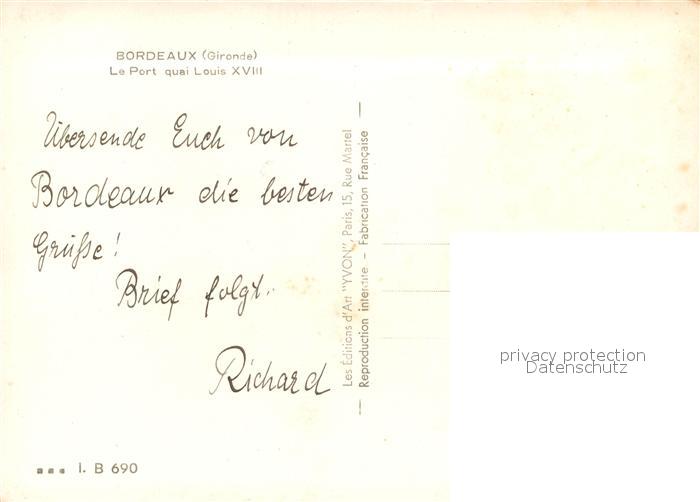 BORDEAUX (Gironde)
Le Port quai Louis XVIII
Übersende Euch von
Bordeaux die besten
Grüße!
Brief folgt.
Richard
Les Éditions d'Art "YVON", Paris, 15, Rue Martel
Reproduction interdite - Fabrication Française
privacy protection
Datenschutz
I. B 690